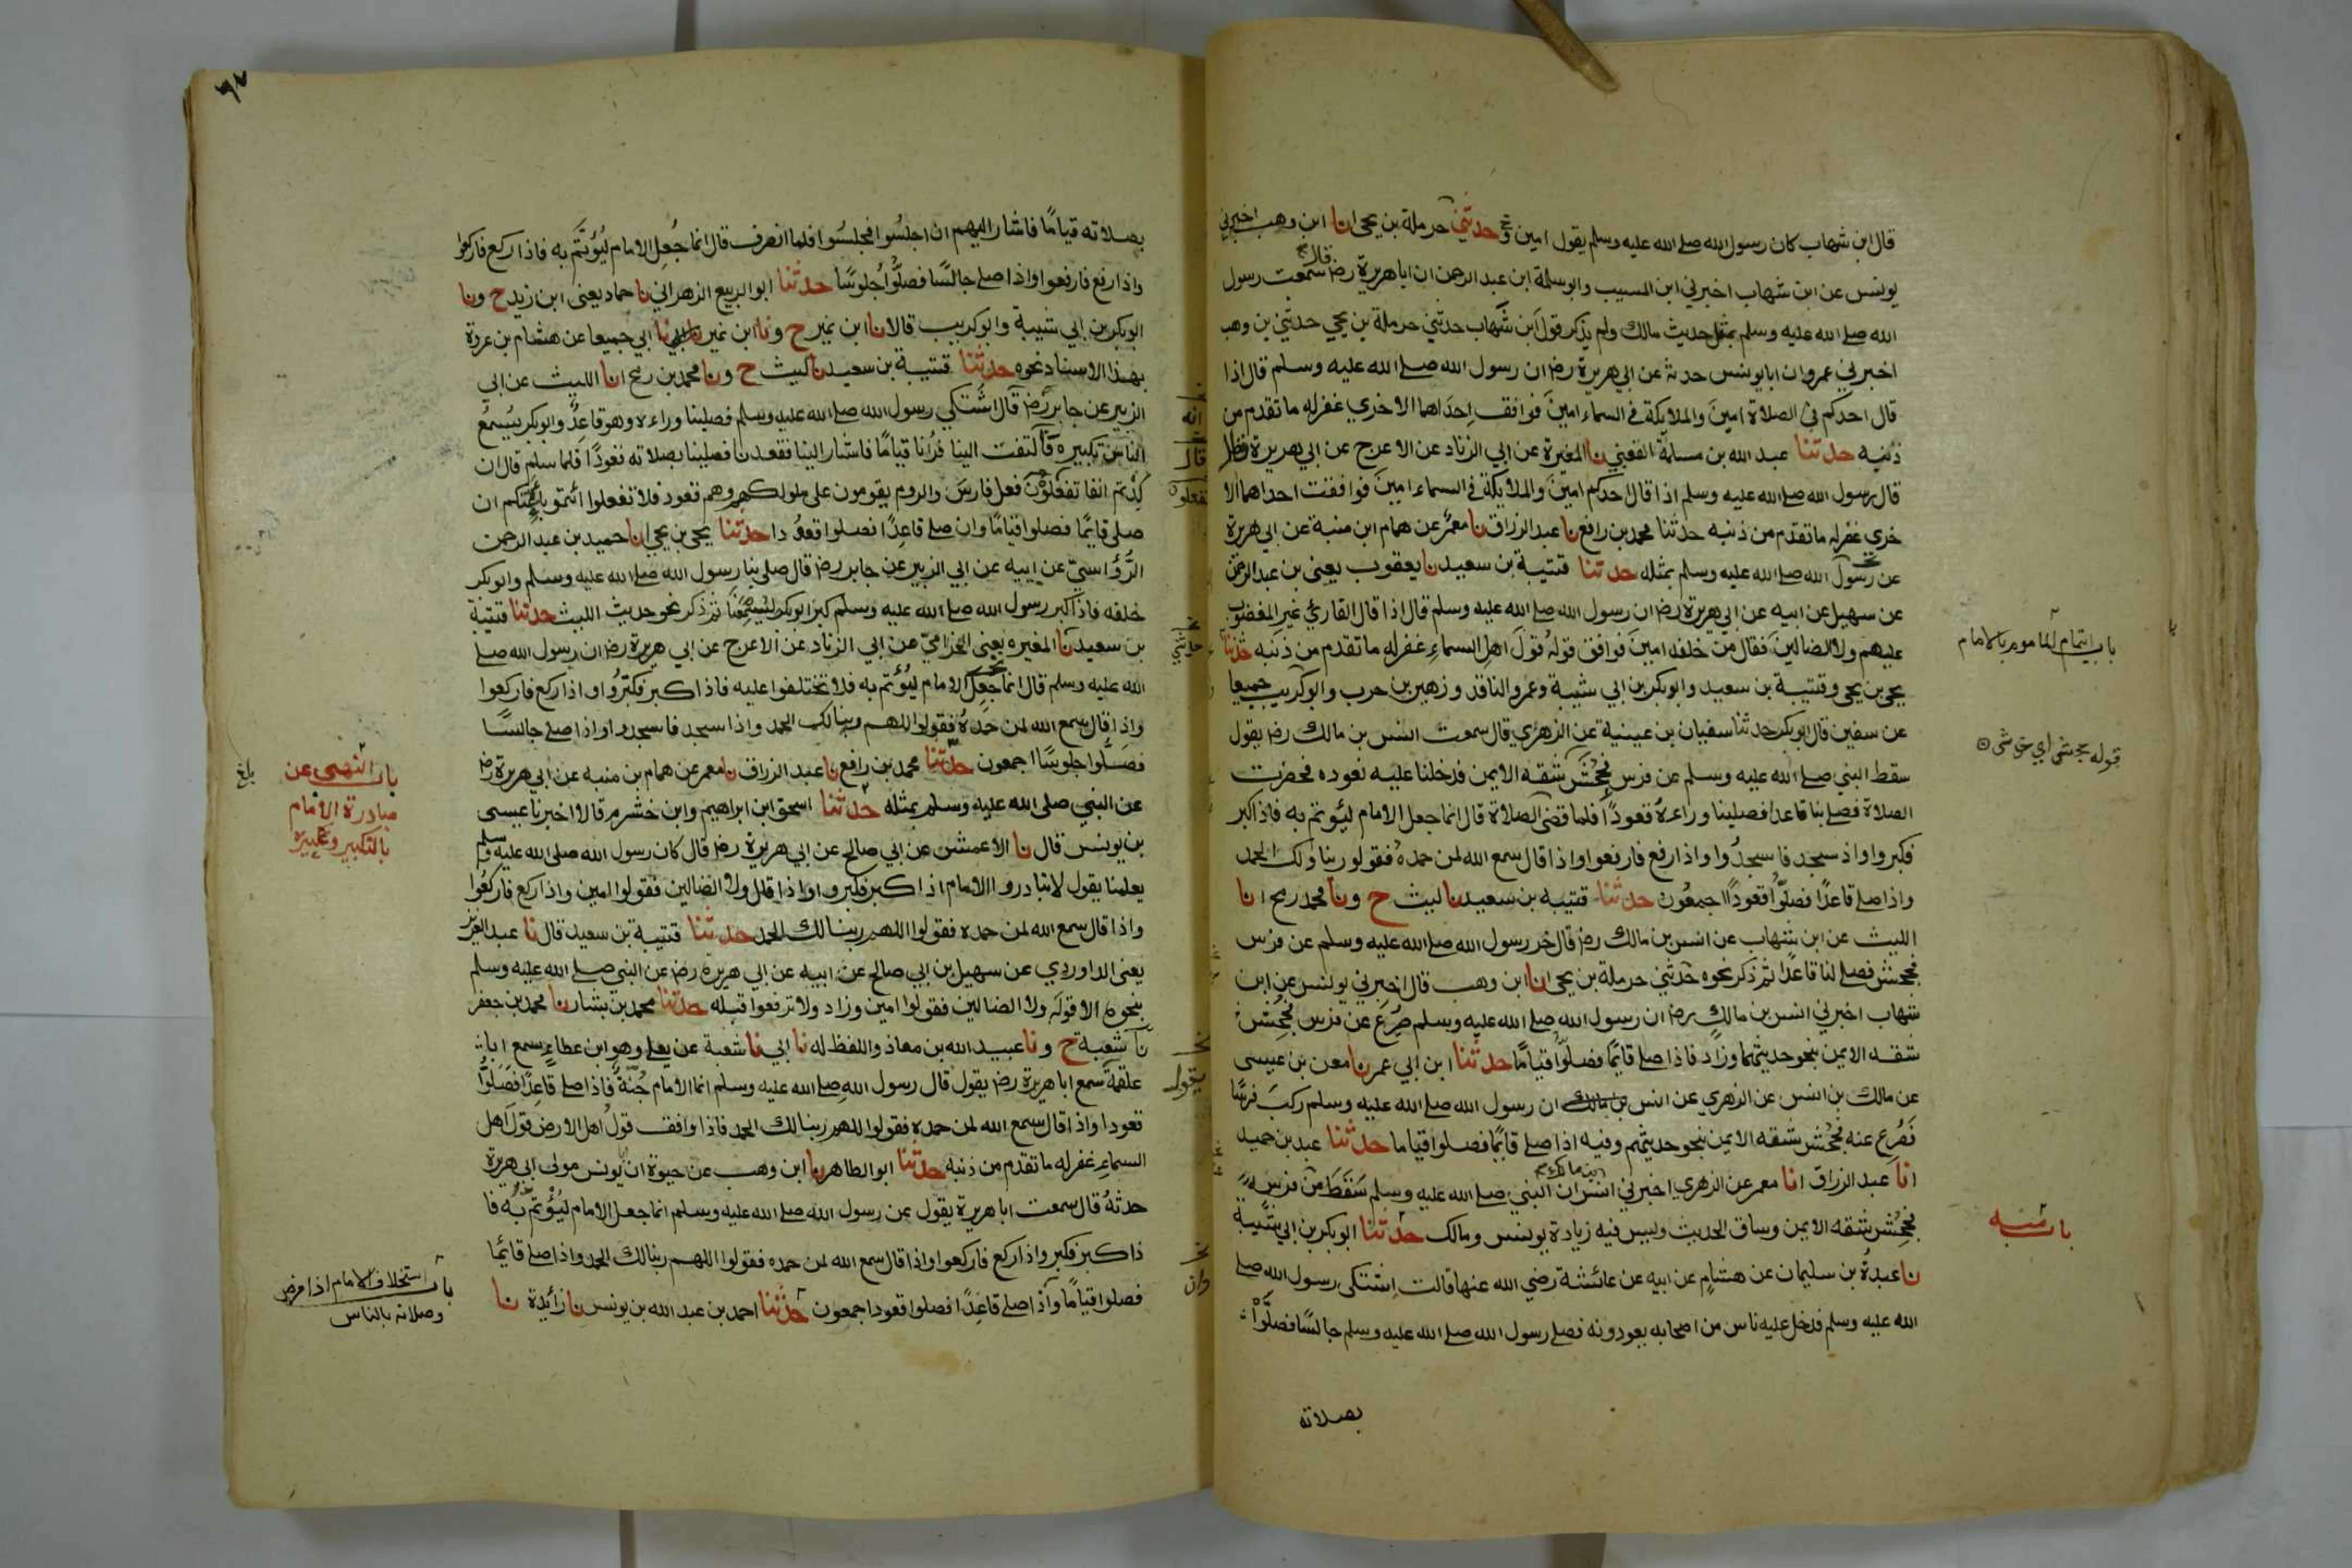 قال ابن شهاب كان رسول الله صلى الله عليه وسلم يقول امين وحدثني حرملة بن يحيى انا ابن وهب اخبرني
يونس عن ابن شهاب اخبرني ابن المسيب وابو سلمة ابن عبد الرحمن ان ابا هريرة رضـ قال سمعت رسول
الله صلى الله عليه وسلم بمثل حديث مالك ولم يذكر قول ابن شهاب حدثني حرملة بن يحيي حدثني بن وهب
اخبرني عمرو ان ابا يونس حدثه عن ابي هريرة رضـ ان رسول الله صلى الله عليه وسلم قال اذا
قال احدكم في الصلاة امين والملايكة في السماء امين فوافق احداهما الاخري غفر له ما تقدم من
ذنبه حدثنا عبد الله بن مسلمة القعنبي نا المغيرة عن ابي الزناد عن الاعرج عن ابي هريرة
قال رسول الله صلى الله عليه وسلم اذا قال احدكم امين والملايكة في السماء امين فوافقت احداهما الا
خرى غفر له ما تقدم من ذنبه حدثنا محمد بن رافع نا عبد الرزاق نا معمر عن همام ابن منبة عن ابي هريرة
عن رسول الله صلى الله عليه وسلم بمثله حدثنا قتيبة بن سعيد نا يعقوب يعنى بن عبد الرحمن
عن سهيل عن ابيه عن ابي هريرة رضـ ان رسول الله صلى الله عليه وسلم قال اذا قال القارئ غير المغضوب
عليهم ولا الضالين فقال من خلفه امين فوافق قوله قول اهل السماء غفر له ما تقدم من ذنبه حدثنا
يحيى بن يحيى وقتيبة بن سعيد وابو بكر بن ابي شيبة وعمرو الناقد وزهير بن حرب وابو كريب جميعا
عن سفين قال ابو بكر حدثنا سفيان بن عيينة عن الزهري قال سمعت انس بن مالك رضـ يقول
سقط النبي صلى الله عليه وسلم عن فرس فجحش شقه الايمن فدخلنا عليه نعوده فحضرت
الصلاة فصلى بنا قاعدا فصلينا وراءه قعودا فلما قضى الصلاة قال انما جعل الامام ليؤتم به فاذا كبر
فكبروا واذ سجد فاسجدوا واذا رفع فارفعوا واذا قال سمع الله لمن حمده فقولو ربنا ولك الحمد
واذا صلى قاعدا فصلوا قعودا اجمعون حدثنا قتيبه بن سعيد نا ليث ح ونا محمد رمح انا
الليث عن ابن شهاب عن انس بن مالك رضـ قال خر رسول الله صلى الله عليه وسلم عن فرس
فجحش فصلى لنا قاعدا ثم ذكر نحوه حدثني حرملة بن يحيى انا ابن وهب قال اخبرني يونس عن ابن
شهاب اخبرني انس بن مالك رضـ ان رسول الله صلى الله عليه وسلم صرع عن فرس فجحش
شقه الايمن بنحو حديثهما وزاد فاذا صلى قايما فصلوا قياما حدثنا ابن ابي عمر نا معن بن عيسى
عن مالك بن انس عن الزهري عن انس بن مالك ان رسول الله صلى الله عليه وسلم ركب فرسا
فصرع عنه فجحش شقه الايمن بنحو حديثهم وفيه اذا صلى قايما فصلوا قياما حدثنا عبد بن حميد
انا عبد الرزاق انا معمر عن الزهري اخبرني انس بن مالك ان النبي صلى الله عليه وسلم سقط من فرسه
فجحش شقه الايمن وساق الحديث وليس فيه زيادة يونس ومالك حدثنا ابو بكر بن ابي شيبة
نا عبدة بن سليمان عن هشام عن ابيه عن عائشة رضي الله عنها قالت اشتكى رسول الله صلى
الله عليه وسلم فدخل عليه ناس من اصحابه يعودونه فصلى رسول الله صلى الله عليه وسلم جالسا فصلوا
بصلاته
باب ايتمام المأموم بالامام
قوله فجحش اي خدش
باب منه
بصلاته قياما فاشار اليهم ان اجلسوا فجلسوا فلما انصرف قال انما جعل الامام ليؤتم به فاذا ركع فاركعوا
واذا رفع فارفعوا واذا صلى جالسا فصلوا جلوسا حدثنا ابو الربيع الزهراني نا حماد يعنى ابن زيد ح ونا
ابو بكر بن ابي شيبة وابو كريب قالا نا ابن نمير ح ونا ابن نمير نا ابي جميعا عن هشام بن عروة
بهذا الاسناد نحوه حدثنا قتيبة بن سعيد نا ليث ح ونا محمد بن رمح انا الليث عن ابي
الزبير عن جابر رضـ قال اشتكي رسول الله صلى الله عليه وسلم فصلينا وراءه وهو قاعد وابو بكر يسمع
الناس تكبيره فالتفت الينا فرانا قياما فاشار الينا فقعدنا فصلينا بصلاته قعودا فلما سلم قال ان
كدتم انفا تفعلون فعل فارس والروم يقومون على ملوكهم وهم قعود فلا تفعلوا ائتمو بائمتكم ان
صلى قايما فصلوا قياما وان صلى قاعدا فصلوا قعودا حدثنا يحيى بن يحيى انا حميد بن عبد الرحمن
الرؤاسي عن ابيه عن ابي الزبير عن جابر رضـ قال صلى بنا رسول الله صلى الله عليه وسلم وابو بكر
خلفه فاذا كبر رسول الله صلى الله عليه وسلم كبر ابو بكر ليسمعنا ثم ذكر نحو حديث الليث حدثنا قتيبة
بن سعيد نا المغيره يعنى الحزامي عن ابي الزناد عن الاعرج عن ابي هريرة رضـ ان رسول الله صلى
الله عليه وسلم قال انما جعل الامام ليؤتم به فلا تختلفوا عليه فاذا كبر فكبروا واذا ركع فاركعوا
واذا قال سمع الله لمن حمده فقولوا اللهم ربنا لك الحمد واذا سجد فاسجدوا واذا صلى جالسا
فصلوا جلوسا اجمعون حدثنا محمد بن رافع نا عبد الرزاق نا معمر عن همام بن منبه عن ابي هريرة رضـ
عن النبي صلى الله عليه وسلم بمثله حدثنا اسحق ابن ابراهيم وابن خشرم قالا اخبرنا عيسى
بن يونس قال نا الاعمش عن ابي صالح عن ابي هريرة رضـ قال كان رسول الله صلى الله عليه وسلم
يعلمنا يقول لا تبادروا الامام اذا كبر فكبروا واذا قال ولا الضالين فقولوا امين واذا ركع فاركعوا
واذا قال سمع الله لمن حمده فقولوا اللهم ربنا لك الحمد حدثنا قتيبة بن سعيد قال نا عبد العزيز
يعنى الداوردي عن سهيل بن ابي صالح عن ابيه عن ابي هريرة رضـ عن النبي صلى الله عليه وسلم
بنحوه الا قوله ولا الضالين فقولوا امين وزاد ولا ترفعوا قبله حدثنا محمد بن بشار نا محمد بن جعفر
نا شعبة ح ونا عبيد الله بن معاذ واللفظ له نا ابي نا شعبة عن يعلى وهو ابن عطاء سمع ابا
علقمة سمع ابا هريرة رضـ يقول قال رسول الله صلى الله عليه وسلم انما الامام جنة فاذا صلى قاعدا فصلوا
قعودا واذا قال سمع الله لمن حمده فقولوا اللهم ربنا لك الحمد فاذا وافق قول اهل الارض قول اهل
السماء غفر له ما تقدم من ذنبه حدثنا ابو الطاهر نا ابن وهب عن حيوة ان يونس مولى ابي هريرة
حدثه قال سمعت ابا هريرة يقول عن رسول الله صلى الله عليه وسلم انما جعل الامام ليؤتم به فا
ذا كبر فكبروا واذا ركع فاركعوا واذا قال سمع الله لمن حمده فقولوا اللهم ربنا لك الحمد واذا صلى قائما
فصلوا قياما واذا صلى قاعدا فصلوا قعودا اجمعون حدثنا احمد بن عبد الله بن يونس نا زائدة نا
باب النهي عن
مبادرة الامام
بالتكبير وغيره
بلغ
باب استخلاف الامام اذا مرض
وصلاته بالناس